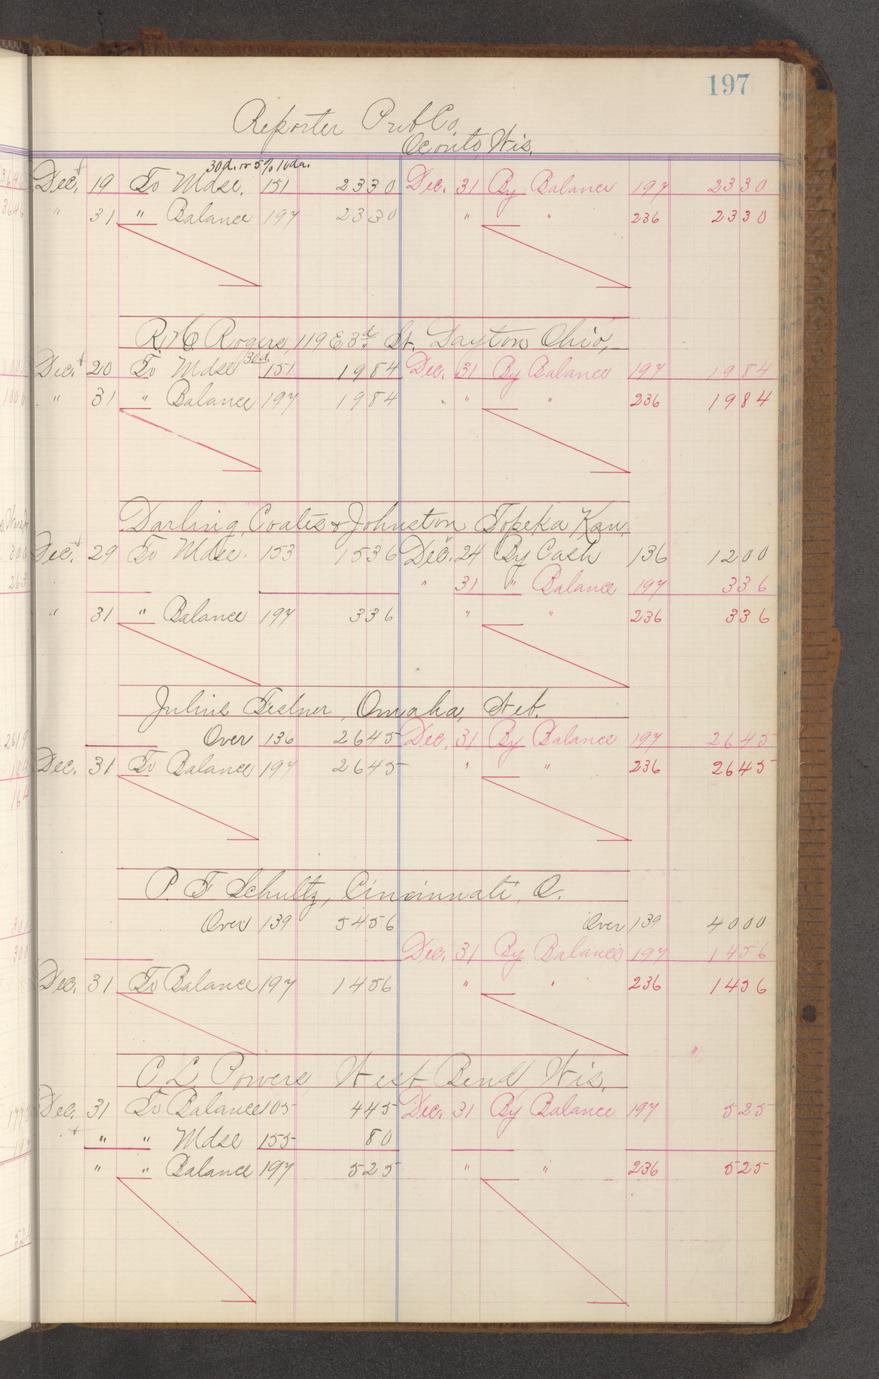 197
Reporter Pub Co.
Oconto Wis.
30 d. or 5% 10 da.
Dec. 19 To Mdse. 151 2330 Dec. 31 By Balance 197 2330
" 31 " Balance 197 2330 " " 236 2330
R. H. Rogers, 119 E 3rd St. Dayton Ohio,
30d.
Dec. 20 To Mdse 151 1984 Dec. 31 By Balance 197 1984
" 31 " Balance 197 1984 " " " 236 1984
Darling, Coates & Johnston Topeka Kan.
Dec. 29 To Mdse. 153 1536 Dec. 24 By Cash 136 1200
" 31 " Balance 197 336
" 31 " Balance 197 336 " " 236 336
Julius Festner, Omaha, Neb.
Over 136 2645 Dec. 31 By Balance 197 2645
Dec. 31 To Balance 197 2645 " " 236 2645
P. F Schultz, Cincinnati, O.
Over 139 5456 Over 139 4000
Dec. 31 By Balance 197 1456
Dec. 31 To Balance 197 1456 " " 236 1456
C L Powers West Bend Wis.
Dec. 31 To Balance 105 445 Dec. 31 By Balance 197 525
" " Mdse 155 80
" " Balance 197 525 " " 236 525